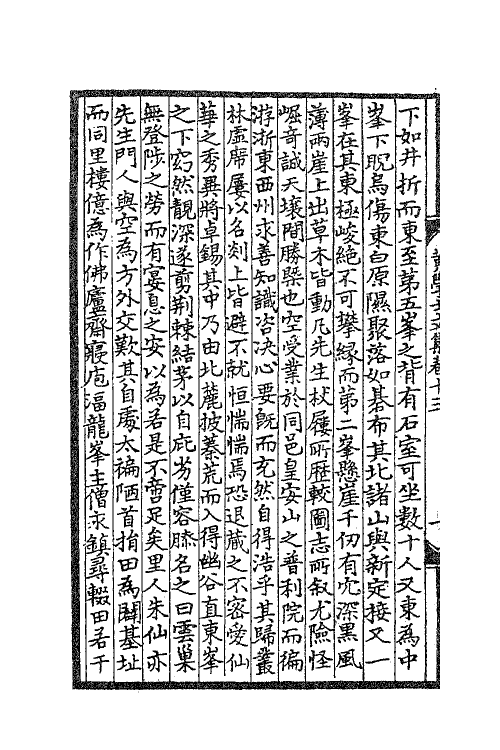 下如井折而東至第五峯之背有石室可坐數十人又東為中
峯下睨烏傷東白原隰聚落如棊布其北諸山與新定接又一
峯在其東極峻絕不可攀緣而第二峯懸崖千仞有穴深黑風
薄兩崖上出草木皆動凡先生杖屨所歷較圖志所敘尤險怪
崛奇誠天壤間勝槩也空受業於同邑皇安山之普利院而徧
游浙東西州求善知識咨決心要旣而充然自得浩乎其歸叢
林虛席屢以名剡上皆避不就恒惴惴焉恐退藏之不密愛仙
華之秀異將卓錫其中乃由北麓披蓁荒而入得幽谷直東峯
之下窈然靚深遂剪荆棘結茅以自庇劣僅容膝名之曰雲巢
無登陟之勞而有宴息之安以為若是不啻足矣里人朱仙亦
先生門人與空為方外交歎其自處太褊陋首捐田為闢基址
而同里樓億為作佛廬齋寢庖湢龍峯主僧永鎮尋輟田若干
黃學士文集卷十三